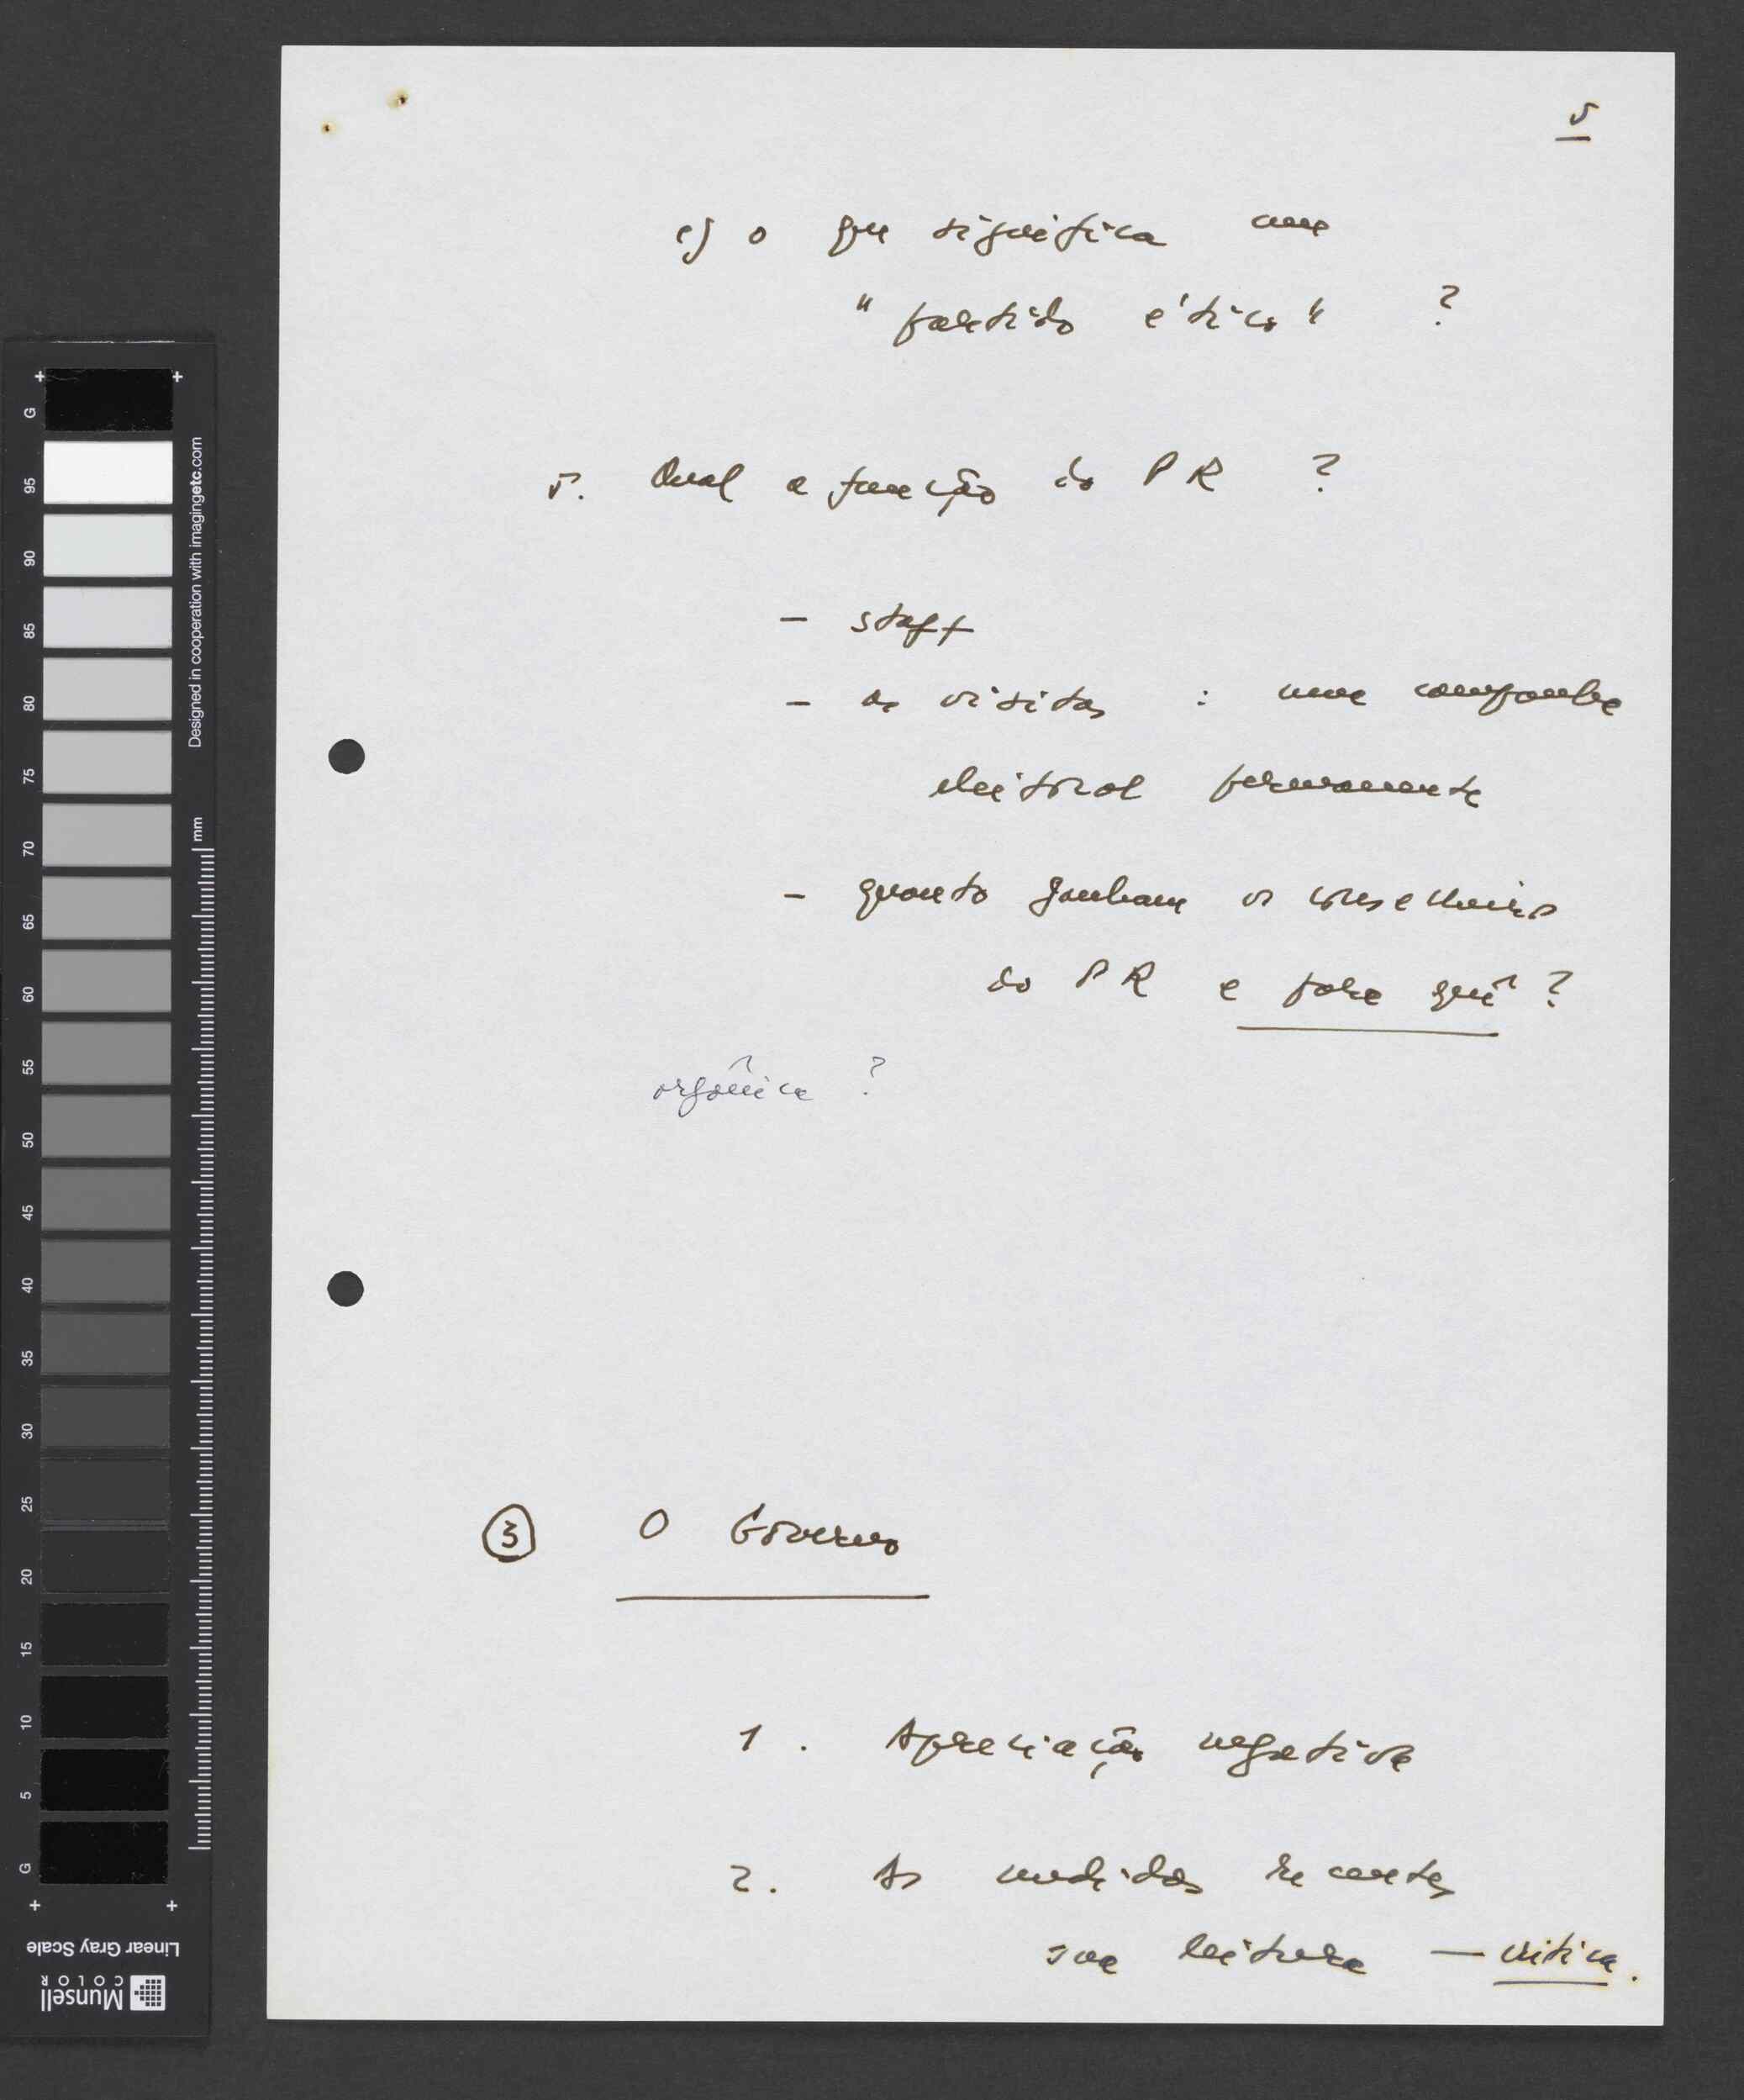 5
e) o que significa um
"partido ético" ?
5. Qual a função do PR ?
- staff
- as visitas : uma campanha
eleitoral permanente
- quanto ganham os conselheiros
do PR e para quê ?
orgânica ?
3 O Governo
1. Apreciação negativa
2. As medidas recentes
sua leitura — crítica.
G
95
90
85
80
75
70
65
60
55
50
45
40
35
30
25
20
15
10
5
G
Designed in cooperation with imagingetc.com
mm
Linear Gray Scale
Munsell
COLOR